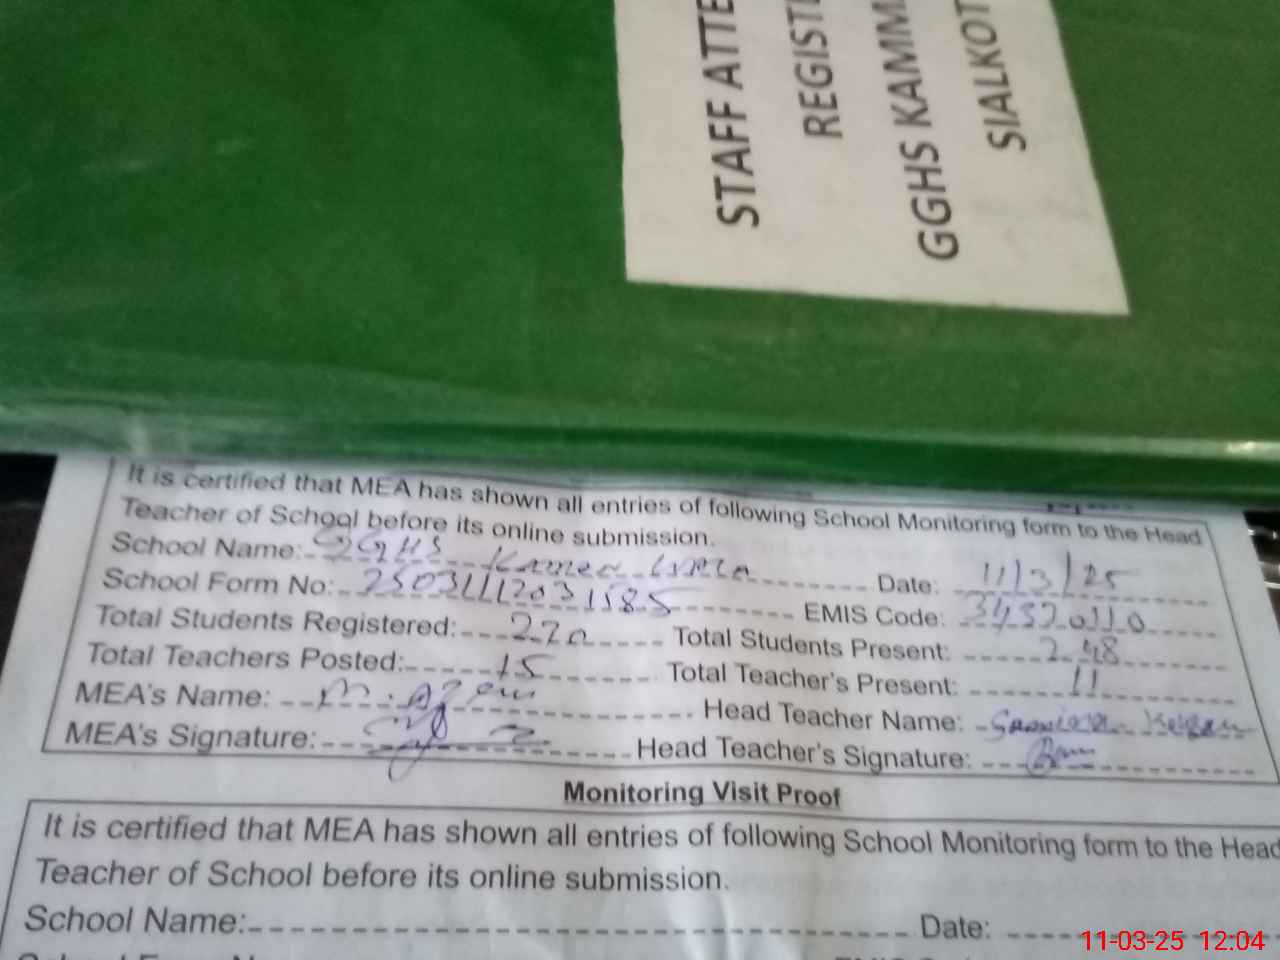 STAFF ATTE
REGIST
GGHS KAMM
SIALKOT
It is certified that MEA has shown all entries of following School Monitoring form to the Head
Teacher of School before its online submission.
School Name: GGHS Date: 11/3/25
School Form No: EMIS Code: 34320110
Total Students Registered: Total Students Present: 248
Total Teachers Posted: 15 Total Teacher's Present: 11
MEA's Name: Head Teacher Name:
MEA's Signature: Head Teacher's Signature:
Monitoring Visit Proof
It is certified that MEA has shown all entries of following School Monitoring form to the Head
Teacher of School before its online submission.
School Name: Date:
11-03-25 12:04